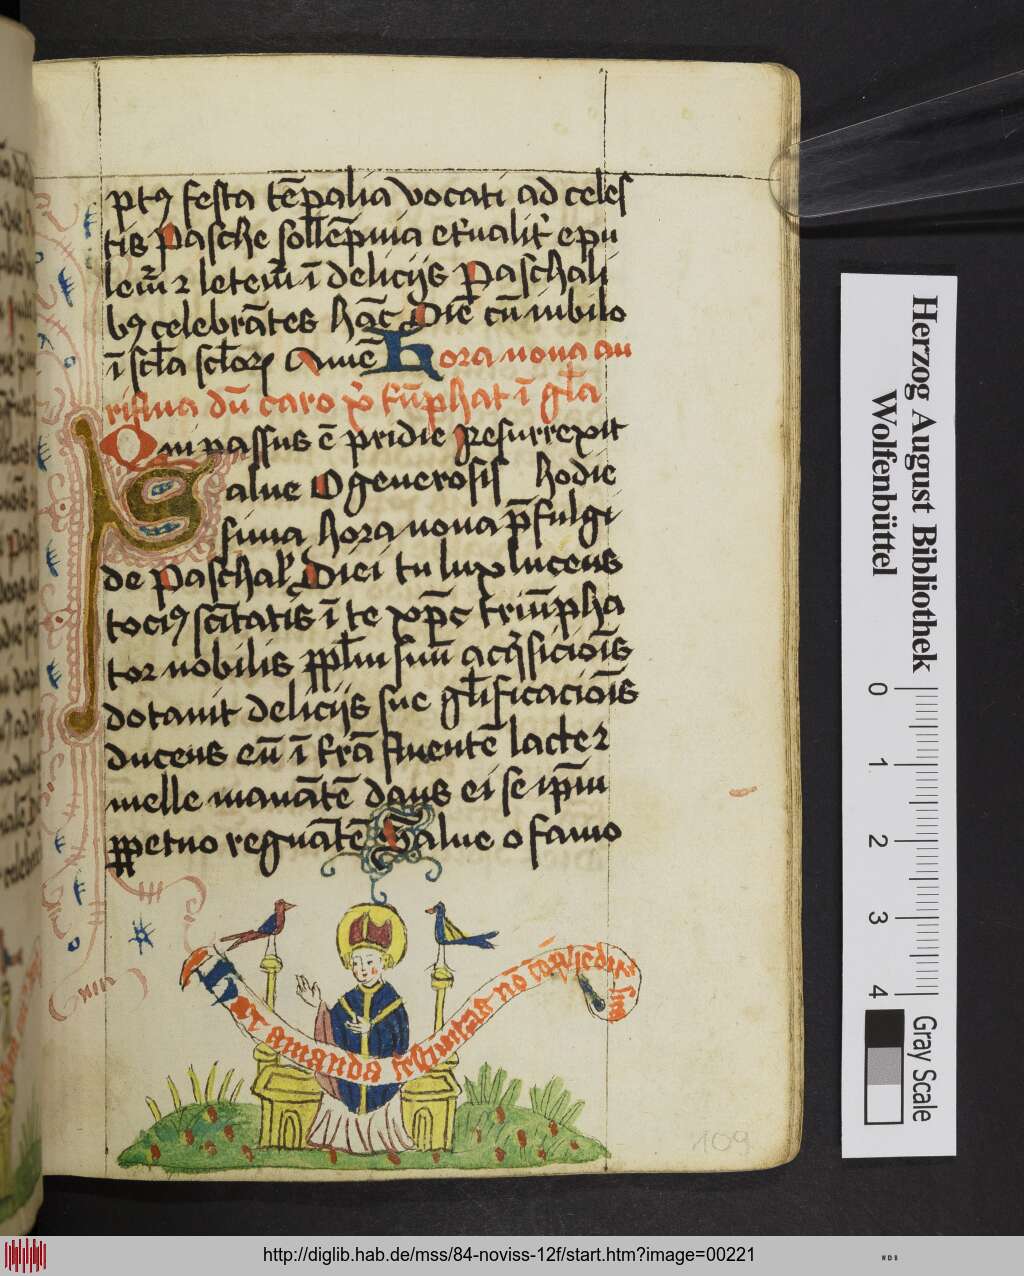 ptꝰ festa te̅palia vocati ad celes
tis Pasche solle̅pnia et͛nalit͛ epu
lem͛ ⁊ letem͛ i̅ delicijs Paschali
bꝰ celebra̅tes ha̅c Die̅ cu̅ iubilo
i̅ sc̅la sc̅loꝝ Ame̅ Hora nona au
risina du̅ caro xp̅i t͛u̅phat i̅ gl̅a
Qui passus e̅ pridie Resurrexit
Salue O generosis hodie
sima hora nona p̅fulgi
de Paschal͛ Diei tu lux lucens
tociꝰ sc̅itatis i̅ te xp̅c triu̅pha
tor nobilis pplm̅ suu̅ acq͛sicio̅is
dotauit delicijs sue gl̅ificacio̅is
ducens eu̅ i̅ t͛ra̅ fluente̅ lacte ⁊
melle mana̅te̅ dans ei se ip̅m
ꝑpetuo regna̅te̅ Salue o famo
Hec amanda festiuitas no̅
109
Herzog August Bibliothek
Wolfenbüttel
0 1 2 3 4
Gray Scale
http://diglib.hab.de/mss/84-noviss-12f/start.htm?image=00221